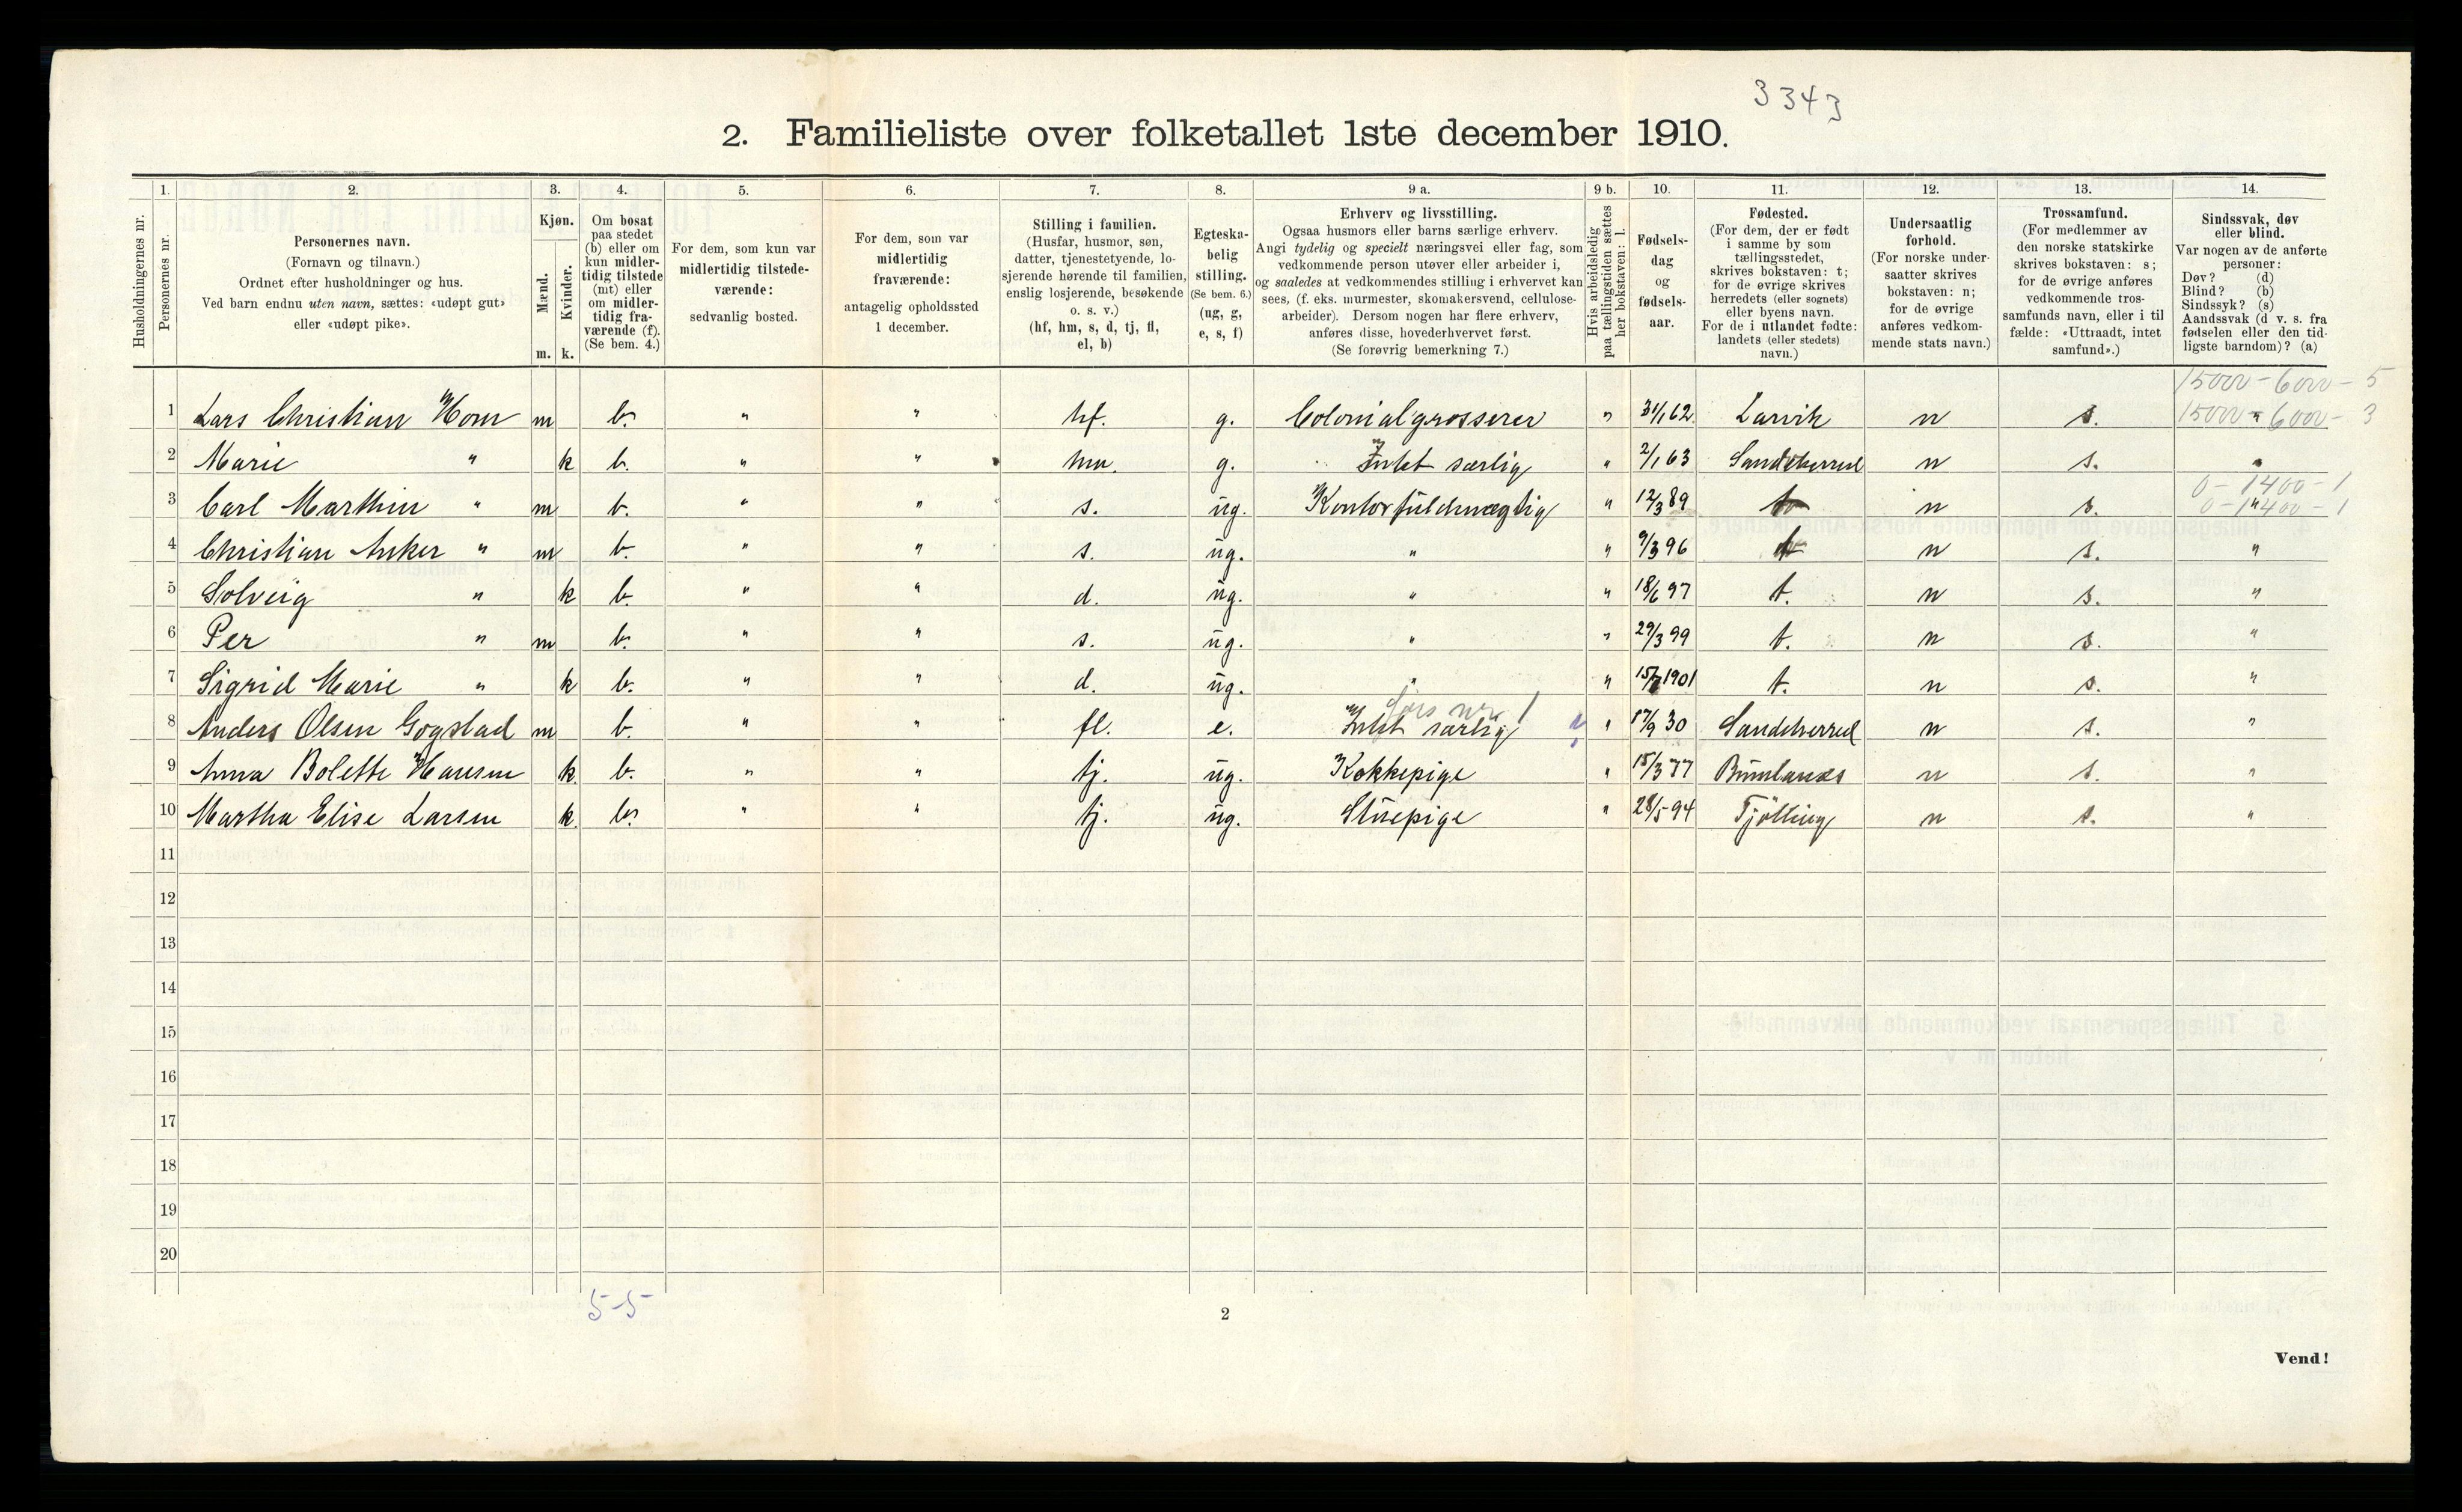 3343
2. Familieliste over folketallet 1ste december 1910.
1. 2. 3. 4. 5. 6. 7. 8. 9 a. 9 b. 10. 11. 12. 13. 14.
Husholdningernes nr.
Personernes nr.
Personernes navn.
(Fornavn og tilnavn.)
Ordnet efter husholdninger og hus.
Ved barn endnu uten navn, sættes: «udøpt gut»
eller «udøpt pike».
Kjøn.
Mænd.
Kvinder.
m. k.
Om bosat
paa stedet
(b) eller om
kun midler-
tidig tilstede
(mt) eller
om midler-
tidig fra-
værende (f).
(Se bem. 4.)
For dem, som kun var
midlertidig tilstede-
værende:
sedvanlig bosted.
For dem, som var
midlertidig
fraværende:
antagelig opholdssted
1 december.
Stilling i familien.
(Husfar, husmor, søn,
datter, tjenestetyende, lo-
sjerende hørende til familien,
enslig losjerende, besøkende
o. s. v.)
(hf, hm, s, d, tj, fl,
el, b)
Egteska-
belig
stilling.
(Se bem. 6.)
(ug, g,
e, s, f)
Erhverv og livsstilling.
Ogsaa husmors eller barns særlige erhverv.
Angi tydelig og specielt næringsvei eller fag, som
vedkommende person utøver eller arbeider i,
og saaledes at vedkommendes stilling i erhvervet kan
sees, (f. eks. murmester, skomakersvend, cellulose-
arbeider). Dersom nogen har flere erhverv,
anføres disse, hovederhvervet først.
(Se forøvrig bemerkning 7.)
Hvis arbeidsledig
paa tællingstiden sættes
her bokstaven: l.
Fødsels-
dag
og
fødsels-
aar.
Fødested.
(For dem, der er født
i samme by som
tællingsstedet,
skrives bokstaven: t;
for de øvrige skrives
herredets (eller sognets)
eller byens navn.
For de i utlandet fødte:
landets (eller stedets)
navn.)
Undersaatlig
forhold.
(For norske under-
saatter skrives
bokstaven: n;
for de øvrige
anføres vedkom-
mende stats navn.)
Trossamfund.
(For medlemmer av
den norske statskirke
skrives bokstaven: s;
for de øvrige anføres
vedkommende tros-
samfunds navn, eller i til
fælde: «Uttraadt, intet
samfund».)
Sindssvak, døv
eller blind.
Var nogen av de anførte
personer:
Døv? (d)
Blind? (b)
Sindssyk? (s)
Aandssvak (d v. s. fra
fødselen eller den tid-
ligste barndom)? (a)
15000 - 6000 - 5
1 Lars Christian Hom m b. " " hf. g. Colonialgrosserer " 31/1 62 Larvik n s. " 15000 - 6000 - 3
2 Marie " k b. " " hm. g. Intet særlig " 2/1 63 Sandeherred n s. "
0 - 1400 - 1
3 Carl Marthin " m b. " " s. ug. Kontorfuldmægtig " 12/3 89 t n s. " 0 - 1400 - 1
4 Christian Anker " m b. " " s. ug. " " 9/3 96 t n s. "
5 Solveig " k b. " " d. ug. " " 18/6 97 t. n s. "
6 Per " m b. " " s. ug. " " 29/3 99 t. n s. "
7 Sigrid Marie " k b. " " d. ug. " " 15/7 1901 t. n s. "
8 Anders Olsen Gogstad m b. " " fl. e. Intet særlig " 17/9 30 Sandeherred n s. "
9 Anna Bolette Hansen k. b. " " tj. ug. Kokkepige " 15/3 77 Brunlanes n s. "
10 Martha Elise Larsen k. b. " " tj. ug. Stuepige " 28/5 94 Tjölling n s. "
11
12
13
14
15
16
17
18
19
20
5-5
2
Vend!